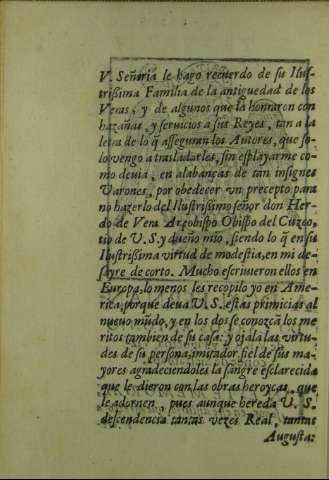 V. Señoria le hago recuerdo de su Ilus-
trißima Familia de la antiguedad de los
Veras, y de algunos que la honraron con
hazañas, y seruicios a sus Reyes, tan a la
letra de lo q̃ asseguran los Autores, que so-
lo vengo a trasladarles, sin esplayarme co-
mo deuia, en alabanças de tan insignes
Varones, por obedecer vn precepto para
no hazerlo del Ilustrissimo señor don Her-
do de Vera Arçobispo Obispo del Cuzco,
tio de V.S. y dueño mio, siendo lo q̃ en su
Ilustrißima virtud de modestia, en mi de-
sayre de corto. Mucho escriuieron ellos en
Europa, lo menos les recopilo yo en Ame-
rica, porque deua V.S. estas primicias al
nueuo mũdo, y en los dos se conozcã los me-
ritos tambien de su casa: y ojala las virtu-
des de su persona, imitador fiel de sus ma-
yores agradeciendoles la sangre esclarecida
que le dieron con las obras heroycas, que
le adornen, pues aunque hereda V.S.
descendencia tantas vezes Real, tantas
Augusta: